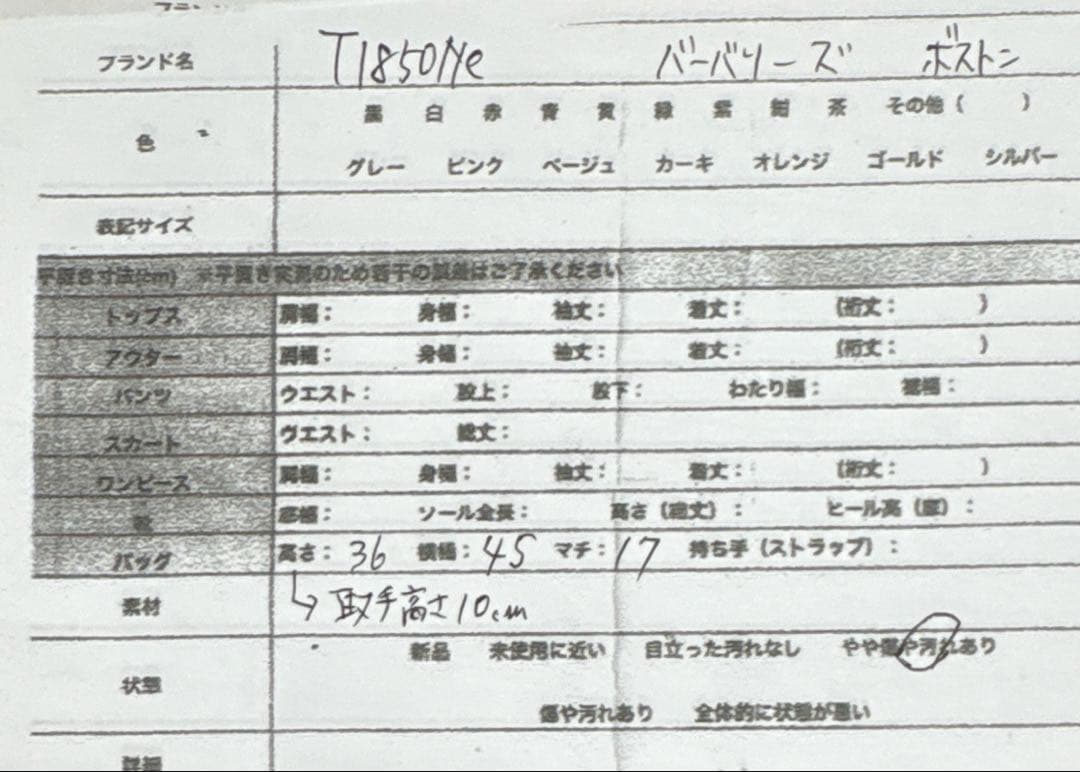 ブランド名 T1850Ne バーバリーズ ボストン
色 黒 白 赤 青 黄 緑 紫 紺 茶 その他 ( )
グレー ピンク ベージュ カーキ オレンジ ゴールド シルバー
表記サイズ
平置き寸法(cm) ※平置き実測のため若干の誤差はご了承ください
トップス 肩幅： 身幅： 袖丈： 着丈： (裄丈： )
アウター 肩幅： 身幅： 袖丈： 着丈： (裄丈： )
パンツ ウエスト： 股上： 股下： わたり幅： 裾幅：
スカート ウエスト： 総丈：
ワンピース 肩幅： 身幅： 袖丈： 着丈： (裄丈： )
靴 底幅： ソール全長： 高さ (総丈)： ヒール高 (厚)：
バッグ 高さ： 36 横幅： 45 マチ： 17 持ち手 (ストラップ)：
素材 ↳ 取手高さ10cm
新品 未使用に近い 目立った汚れなし やや傷や汚れあり
状態
傷や汚れあり 全体的に状態が悪い
詳細